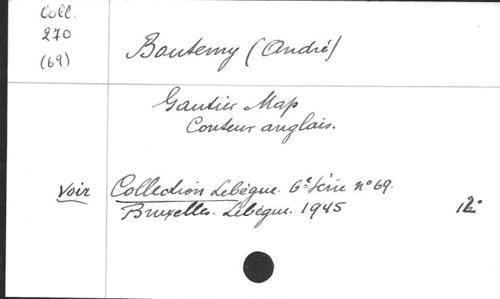 Coll.
270
(69)
Boutemy (André)
Gautier Map
Conteur anglais.
Voir Collection Lebègue. 6e série n° 69.
Bruxelles. Lebègue. 1945 12°